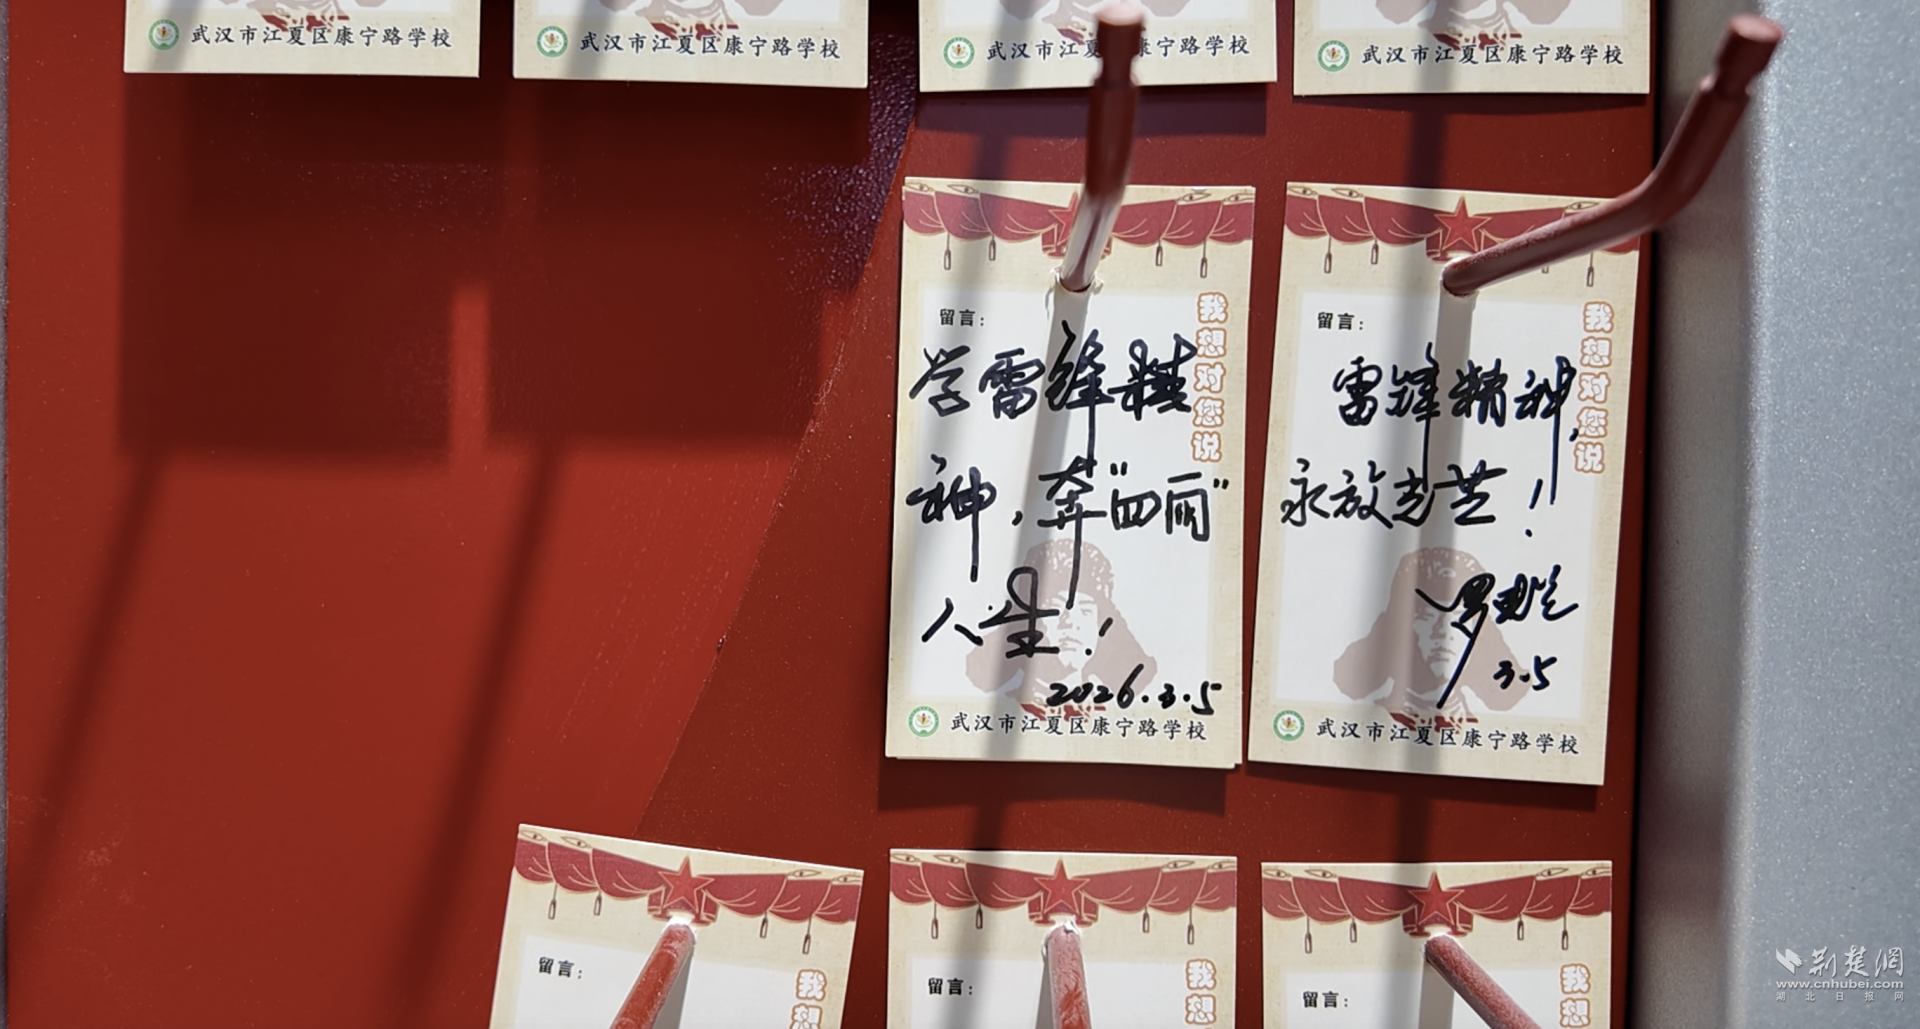 武汉市江夏区康宁路学校
武汉市江夏区康宁路学校
武汉市江夏区康宁路学校
武汉市江夏区康宁路学校
留言：
我想对您说
学雷锋精
神，奔“四丽”
人生！
2026.3.5
武汉市江夏区康宁路学校
留言：
我想对您说
雷锋精神，
永放光芒！
3.5
武汉市江夏区康宁路学校
留言：
我想
留言：
我想
留言：
我想
荆楚網
www.cnhubei.com
湖北日报网